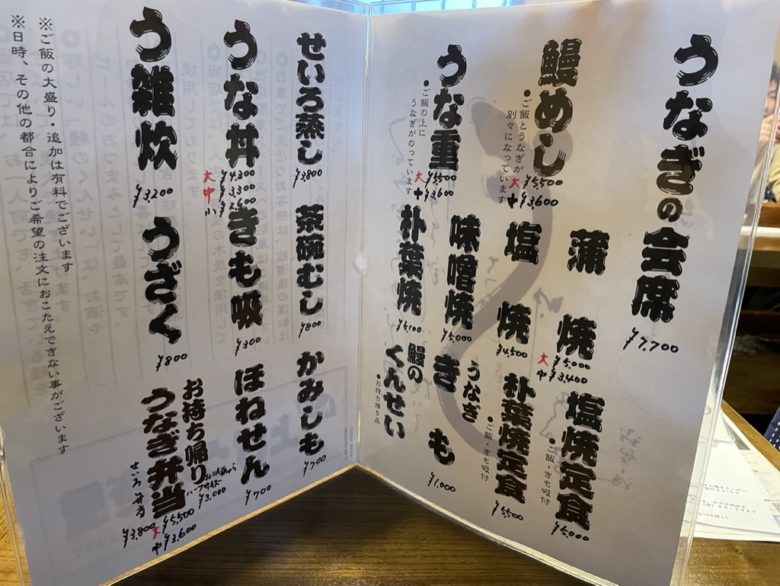 うなぎの会席
¥7,700
鰻めし
・ご飯とうなぎが
別々になっています
大 ¥5,500
中 ¥3,600
うな重
・ご飯の上に
うなぎがのっています
大 ¥5,500
中 ¥3,600
蒲焼
大 ¥5,000
中 ¥3,400
塩焼
¥4,500
味噌焼
¥5,000
朴葉焼
¥5,100
塩焼定食
・ご飯・きも吸付
¥5,000
朴葉焼定食
・ご飯・きも吸付
¥5,500
うなぎ
きも
¥1,000
鰻の
くんせい
・お持ち帰り品
せいろ蒸し
¥3,800
茶碗むし
¥800
かみしも
¥700
うな丼
大 ¥4,300
中 ¥3,300
小
きも吸
¥300
ほねせん
¥700
う雑炊
¥3,200
うざく
¥800
お持ち帰り
うなぎ弁当
¥3,000
大 ¥5,500
中 ¥3,600
せいろ弁当
¥3,800
※ご飯の大盛り・追加は有料でございます
※日時、その他の都合によりご希望の注文におこたえできない事がございます